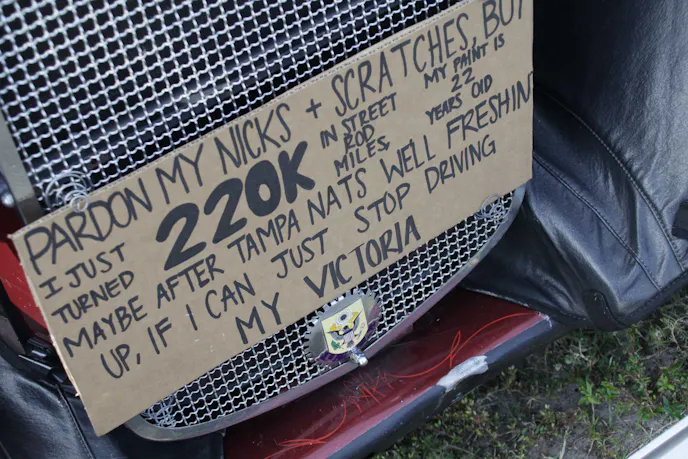 PARDON MY NICKS + SCRATCHES, BUT
I JUST TURNED 220K IN STREET ROD MILES, MY PAINT IS 22 YEARS OlD
MAYBE AFTER TAMPA NATS WE'LL FRESHIN
UP, IF I CAN JUST STOP DRIVING
MY VICTORIA